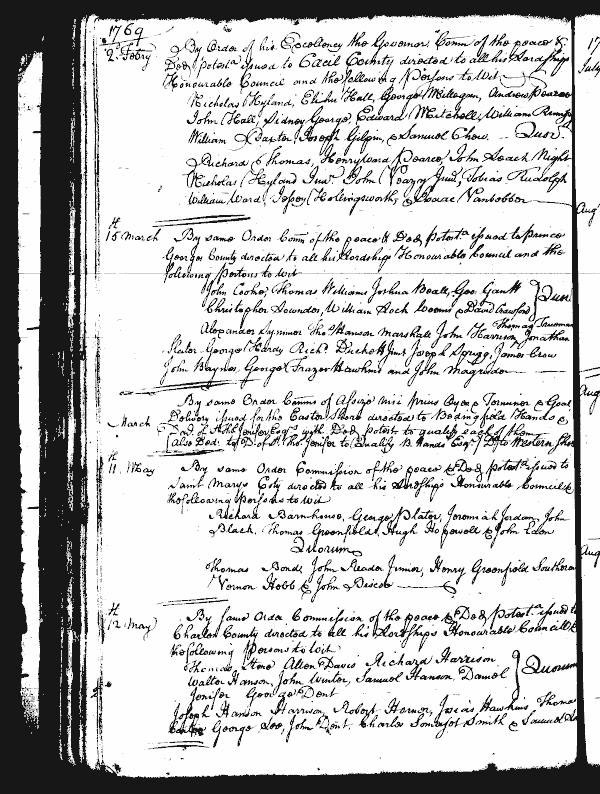 1769
2d. Febry By Order of his Excellency the Governor Comn of the peace &
Ded. potesta. issued to Cæcil County directed to all his Lordships
Honourable Council and the following Persons to Wit
Nicholas Hyland, Elihu Hall, George Millegan, Andrew Pearce
John Hall, Sidney George, Edward Mitchell, William
William Baxter, Joseph Gilpin, & Samuel Chew. Quor
Richard Thomas, Henry Ward Pearce, John Leach Night
Nicholas Hyland Junr. John Veazy Junr, Tobias Rudolph
William Ward, Jessey Hollingsworth, & Isaac Vanbobber
15 March By same Order Comn of the peace & Ded. potest.a issued to Prince
Georges County directed to all his Lordships Honourable Council and the
following Persons to Wit
John Cooke, Thomas Williams Joshua Beall, Geo. Gantt
Christopher Lowndes, William Lock Weems & David Crawford
Quor
Alexander Symmer Tho. Hanson Marshall John Harrison Thomas Jonathan
Slater George Hardy Richd. Duckett Junr Joseph Sprigg, James Crow
John Baynes, George Frazer Hawkins and John Magruder
March By same Order Comns of Assize Nisi Prius Oyer & Terminer & Goal
Delivery issued for the Eastern Shore directed to Bedingfield Hands &
Jenifer Esqrs with Ded. Potest to qualify each of them
also Ded. to D. of St. Tho. Jenifer to Qualify B. Hands Esqr. Do. to Western Shore
11 May By same Order Commission of the peace & Ded. potest.a issued to
Saint Marys Coty directed to all his Lordships Honourable Council &
the following persons to Wit
Richard Barnhouse, George Plater, Jeremiah Jordan, John
Black, Thomas Greenfield, Hugh Hopewell & John Eden
Quorum
Thomas Bond, John Reeder Junior, Henry Greenfield Sothoron
Vernon Hebb & John Briscoe
12 May By same Order Commission of the peace & Ded. potest.a issued to
Charles County directed to all his Lordships Honourable Council &
the following persons to Wit
Thomas Stone Allen Davis Richard Harrison
Walter Hanson, John Winter, Samuel Hanson Daniel
Jenifer George Dent
Quorum
Joseph Hanson Harrison, Robert Horner, Josias Hawkins Thomas
George Lee, John Dent. Charles Somerset Smith & Samuel